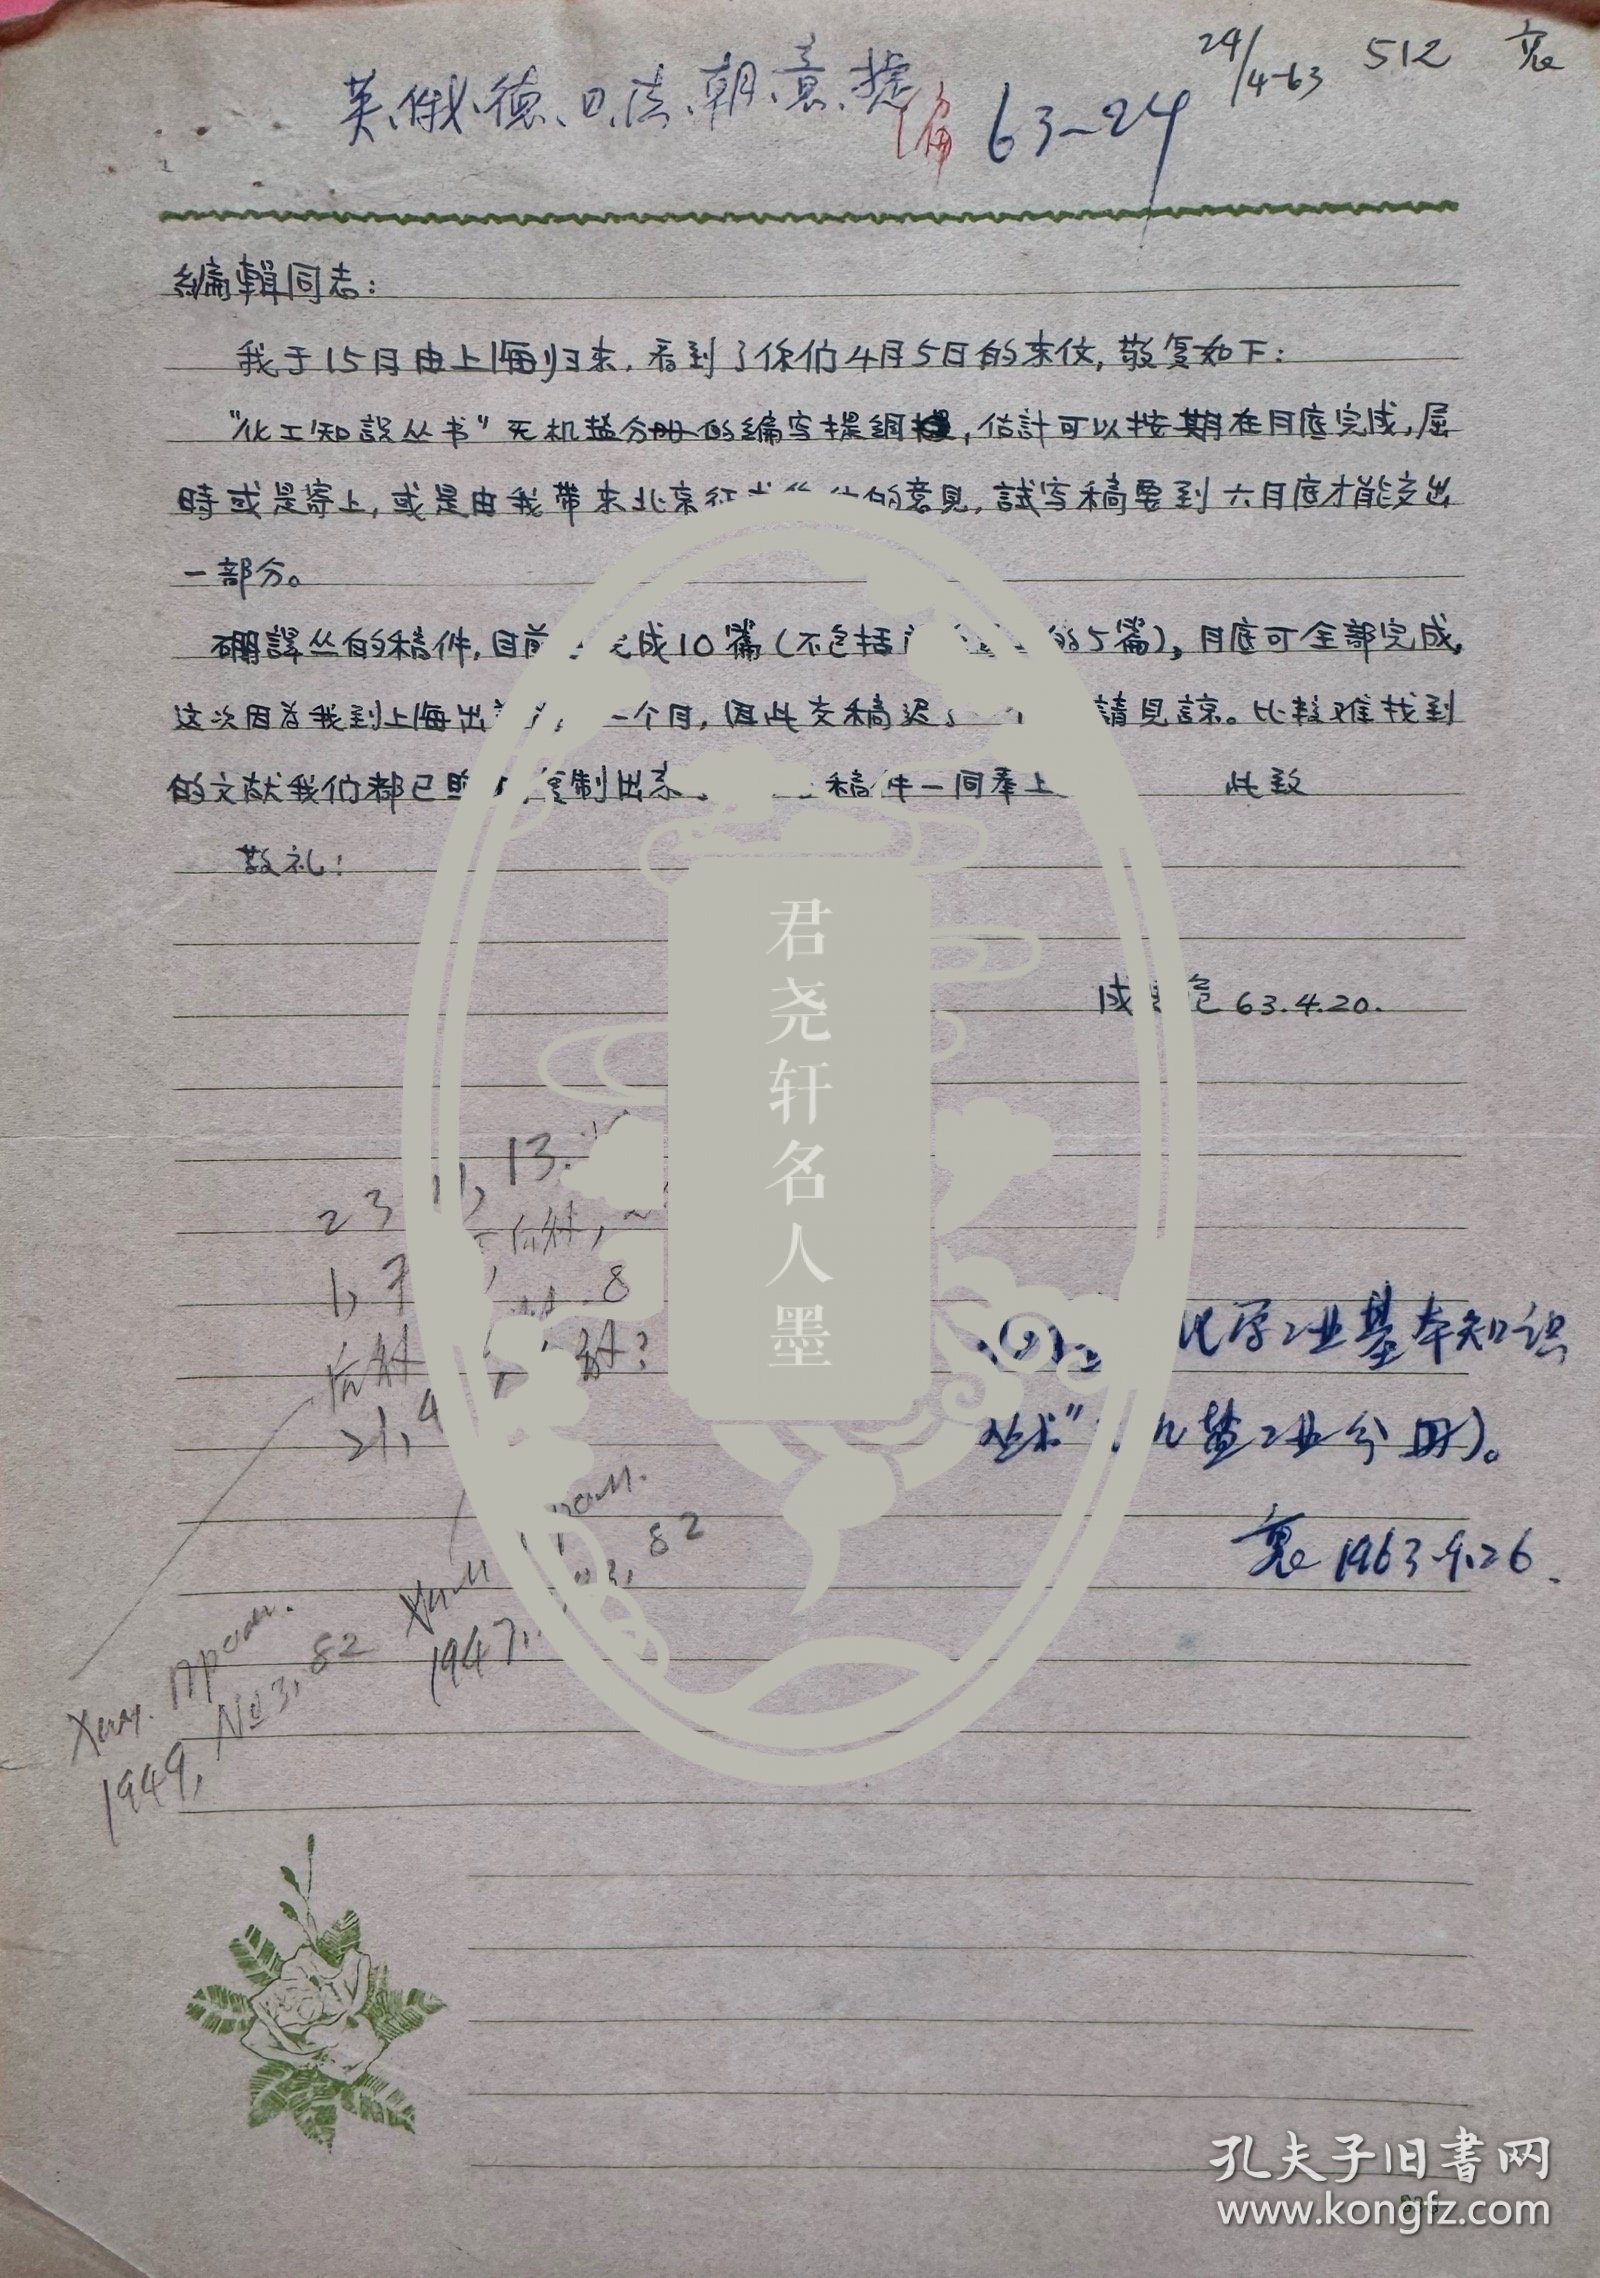 24/4-63 512
英、俄、德、日、法、朝、意、捷
编 63-24
編輯同志:
我于15日由上海归来,看到了你们4月5日的来信,敬复如下:
"化工知識丛书"无机盐分册的編写提綱,估計可以按期在月底完成,屆
時或是寄上,或是由我帶来北京征求你们的意見,試写稿要到六月底才能交出
一部分。
硼譯丛的稿件,目前 完成10篇(不包括 的5篇),月底可全部完成,
这次因为我到上海出 一个月,因此交稿迟了 請見諒。比较难找到
的文献我们都已 复制出来 稿件一同奉上 此致
敬礼!
成 63.4.20.
23 11, 13.
1, 7
8
21, 4
化学工业基本知识
丛书" 机盐工业分册)。
1963.4.26.
Хим. Пром.
1947, 3, 82
Хим. Пром.
1949, №3, 82
君尧轩名人墨
孔夫子旧书网
www.kongfz.com